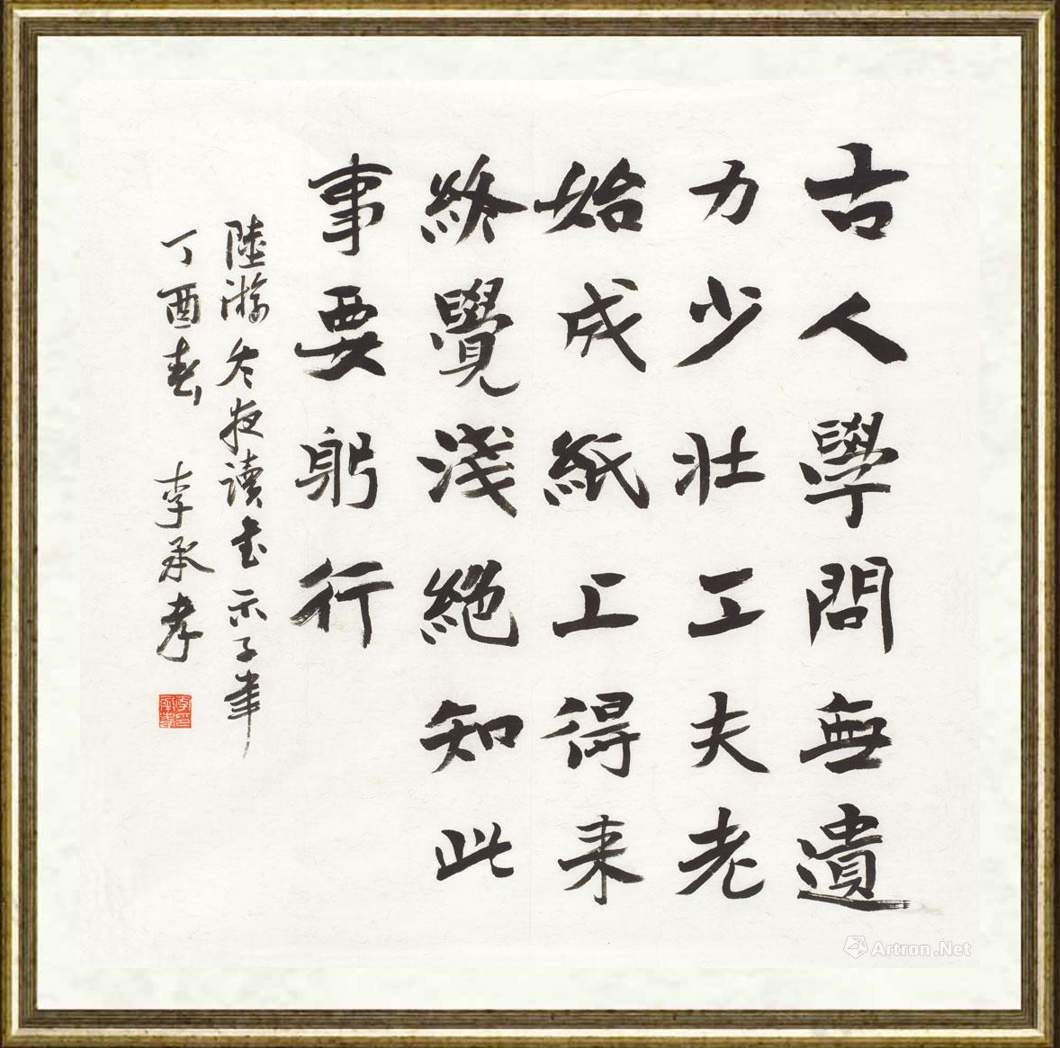 古人學問無遺
力少壯工夫老
始成紙上得来
終覺淺絕知此
事要躬行
陸游冬夜讀書示子聿
丁酉春 李承孝
Artron.Net